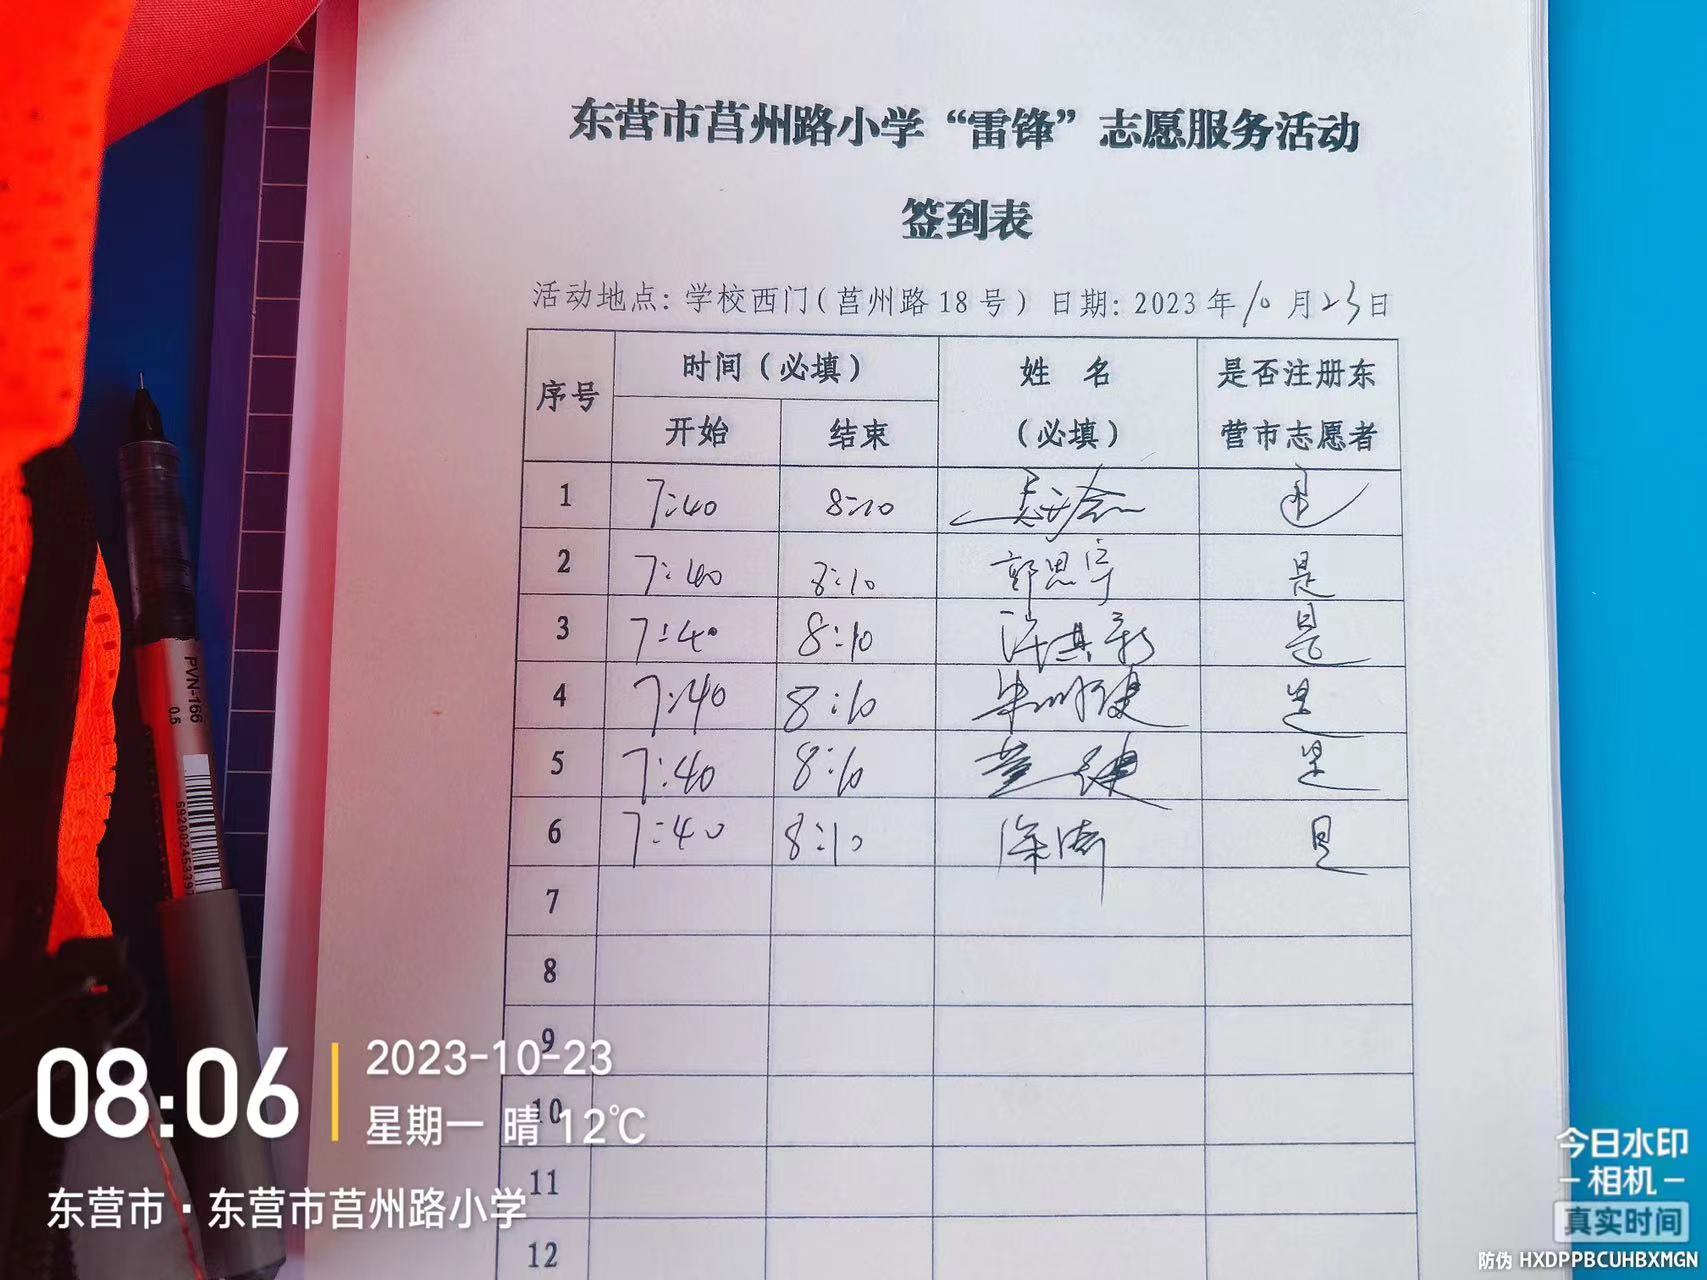 东营市莒州路小学“雷锋”志愿服务活动
签到表
活动地点: 学校西门(莒州路18号) 日期: 2023年10月23日
序号 时间(必填) 姓 名 是否注册东
开始 结束 (必填) 营市志愿者
1 7:40 8:10 是
2 7:40 8:10 郭思宇 是
3 7:40 8:10 是
4 7:40 8:10 是
5 7:40 8:10 是
6 7:40 8:10 是
7
8
9
10
11
12
PVN-166
0.5
08:06
2023-10-23
星期一 晴 12℃
东营市·东营市莒州路小学
今日水印
相机
真实时间
防伪 HXDPPBCUHBXMGN